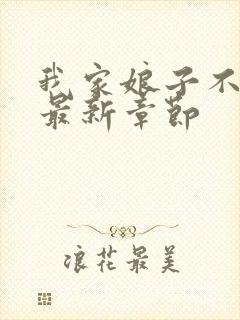 我家娘子不
最新章节
浪花最美